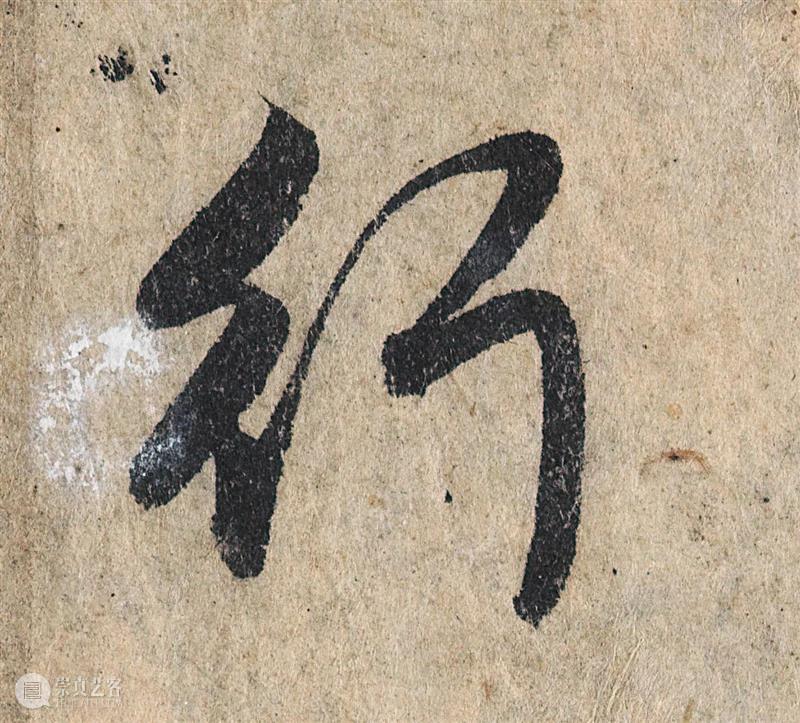 行
崇真艺客